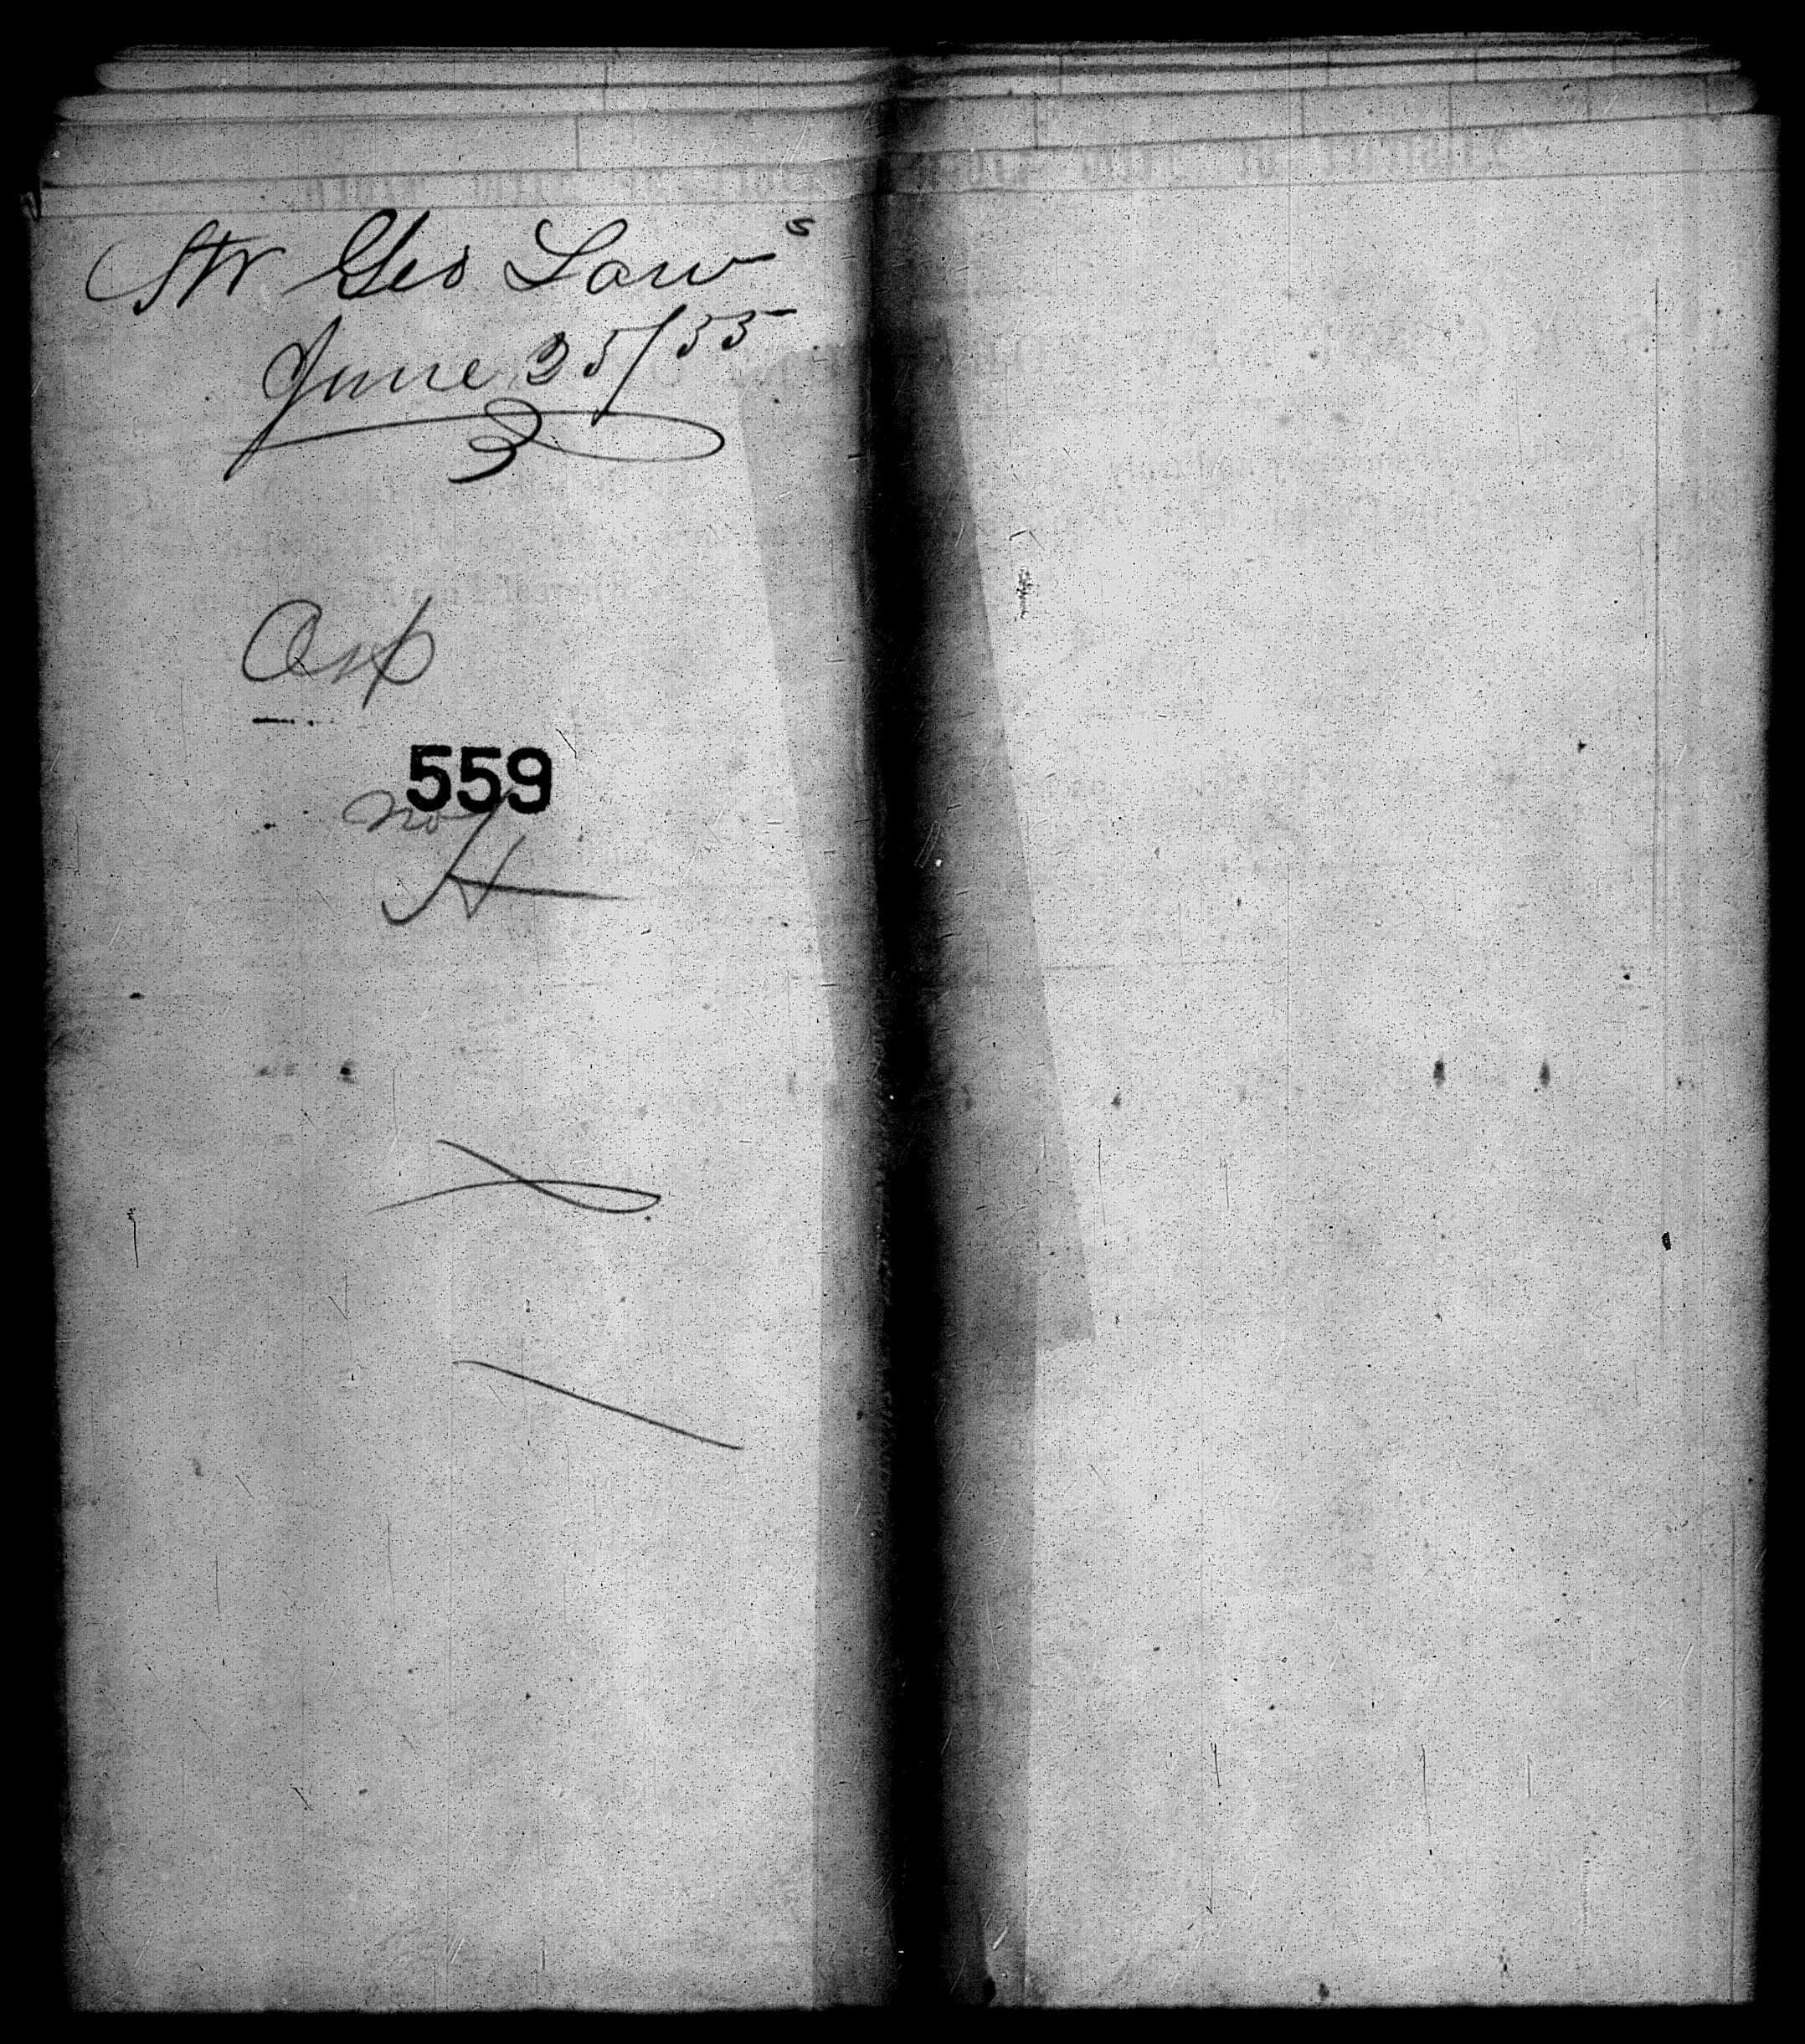 Str Geo Law s
June 25/55
Asp
559
No
H